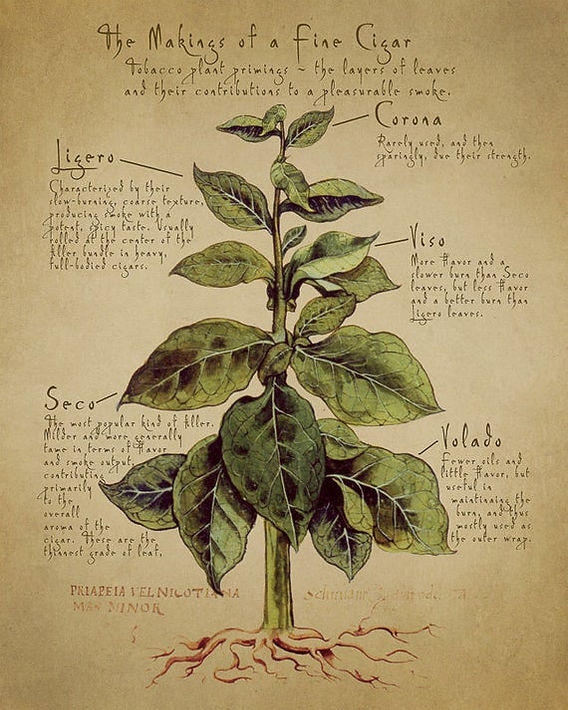 The Makings of a Fine Cigar
Tobacco plant primings ~ the layers of leaves
and their contributions to a pleasurable smoke.
Corona
Rarely used, and then
sparingly, due their strength.
Ligero
Characterized by their
slow-burning, coarse texture,
producing smoke with a
potent, spicy taste. Usually
rolled at the center of the
filler bundle in heavy,
full-bodied cigars.
Viso
More flavor and a
slower burn than Seco
leaves, but less flavor
and a better burn than
Ligero leaves.
Seco
The most popular kind of filler.
Milder and more generally
tame in terms of flavor
and smoke output,
contributing
primarily
to the
overall
aroma of the
cigar. These are the
thinnest grade of leaf.
Volado
Fewer oils and
little flavor, but
useful in
maintinaing the
burn, and thus
mostly used as
the outer wrap.
PRIAPEIA VEL NICOTIANA
MAS MINOR